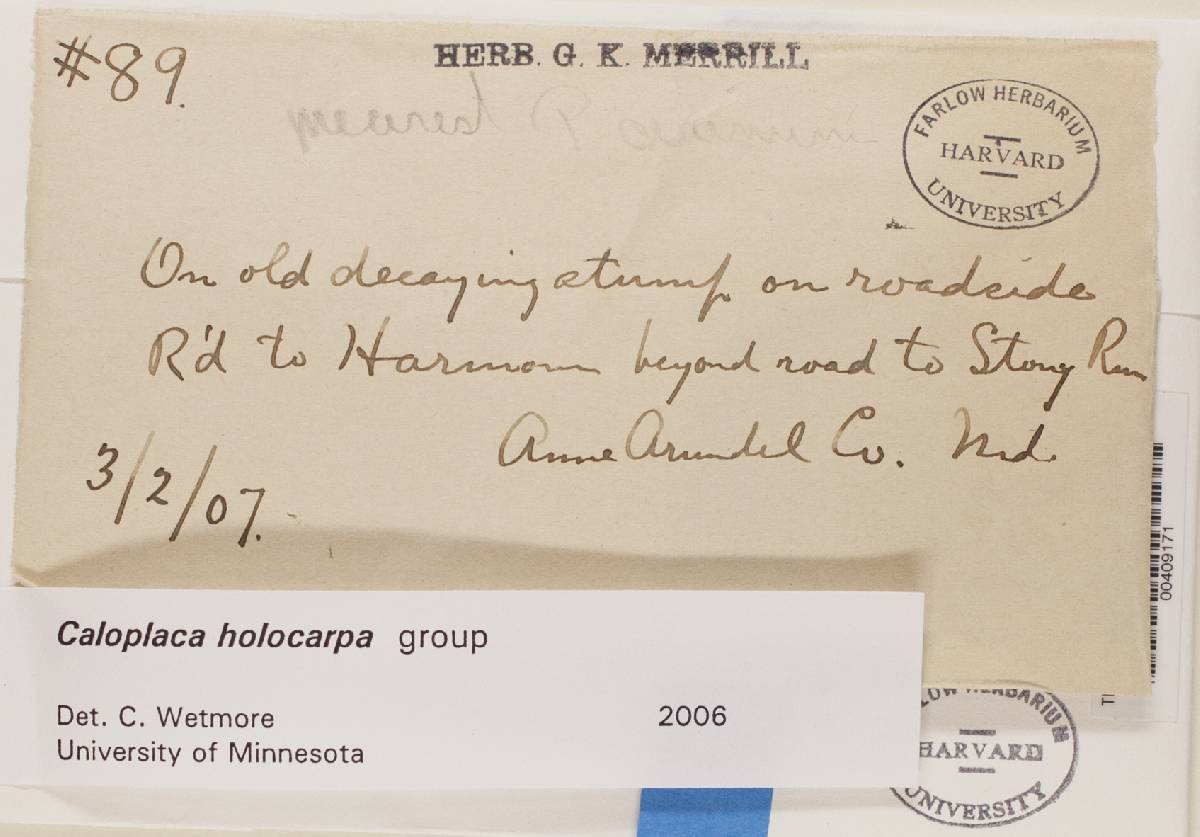 #89.
HERB. G. K. MERRILL
FARLOW HERBARIUM
HARVARD
UNIVERSITY
On old decaying stump on roadside
R'd to Harmon beyond road to Stony Run
Anne Arundel Co. Md.
3/2/07.
00409171
Caloplaca holocarpa group
Det. C. Wetmore 2006
University of Minnesota
LOW HERBARIUM
HARVARD
UNIVERSITY